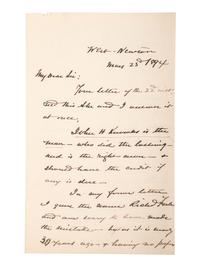 West-Newton
May 23d 1894
My Dear Sir:
Your letter of the 22d inst
and I answer it
at once,
John H Knowles is the
man - who did the lashing -
and is the right man - &
should have the credit if
any is due -
In my former letter
I gave the name Richd
and am sorry to have made
the mistake - but as it is nearly
30 years ago - & having no papers